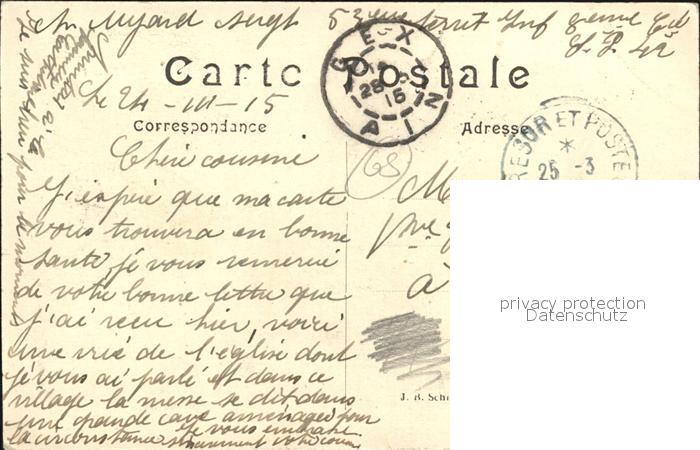 53 eme Territ Inf 9eme Cie
S.P. 42
Carte Postale
GEX
28
15
AIN
Le 24-III-15
Correspondance
Adresse
TRESOR ET POSTES
*
25 -3
68
Chère cousine
J'espère que ma carte
vous trouvera en bonne
santé, je vous remercie
de votre bonne lettre que
j'ai reçu hier, voici
une vrie de l'église dont
je vous ai parlé et dans ce
village la messe se dit dans
une grande cave aménagée pour
la circonstance je vous embrasse
votre cousin
M
à
J. B. Sch
privacy protection
Datenschutz